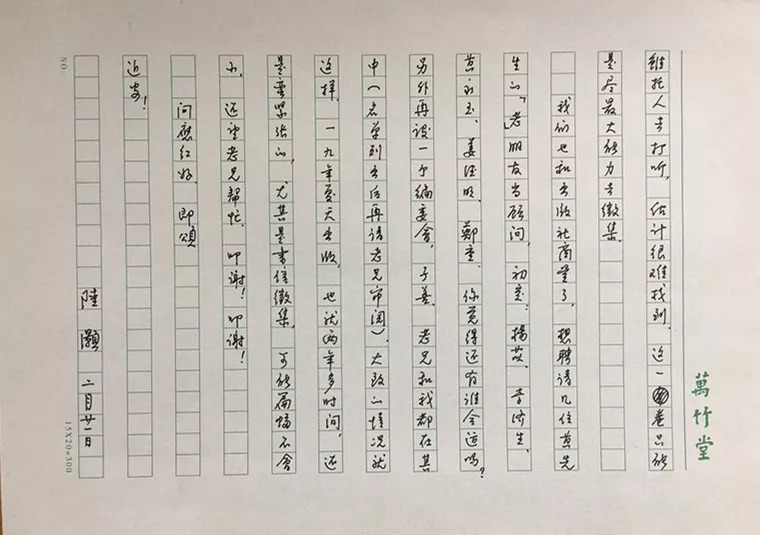 萬竹堂
雖托人去打听,估计很难找到。这一卷只能
是尽最大能力去徵集。
我们也和出版社商量了,想聘请几位黄先
生的「老」朋友当顾问,初步:杨苡、李济生、
黄永玉、姜德明、鄭重。你觉得还有谁合适吗?
另外再设一个编委会,子善、老兄和我都在其
中(名单列出后再请老兄审阅)。大致的情况就
这样,一九年夏天出版,也就两年多时间,还
是蛮紧张的,尤其是書信徵集。可能篇幅不會
小,还望老兄帮忙。叩谢!叩谢!
问應红好。即頌
近安!
陸灝 二月廿一日
NO.
15X20=300